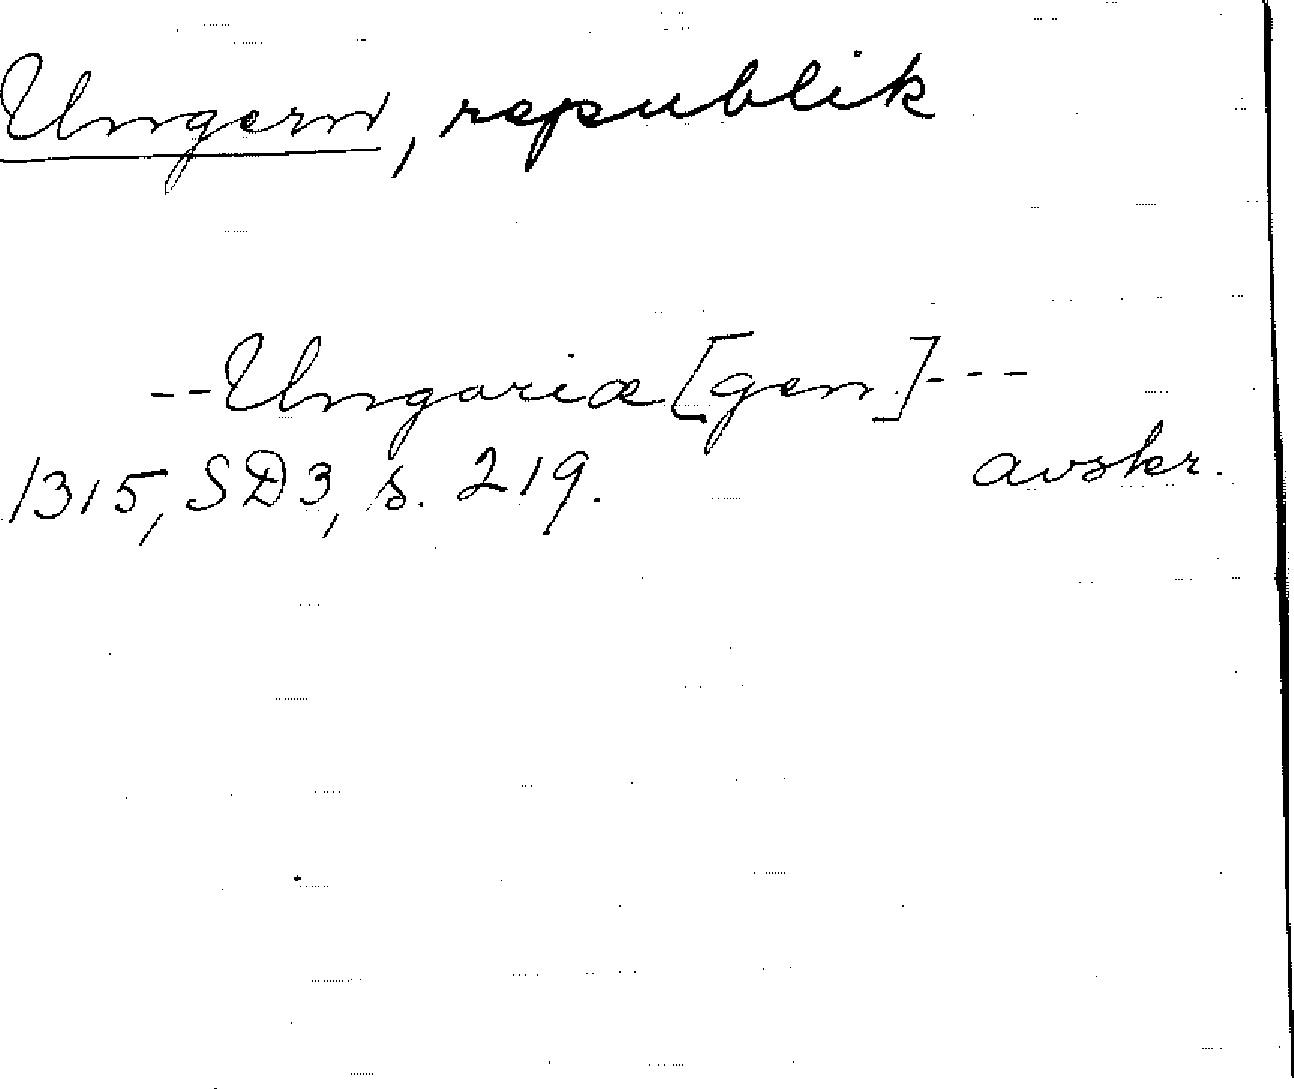 Ungern, republik
--Ungariæ [gen]---
1315, SD3, s. 219. avskr.